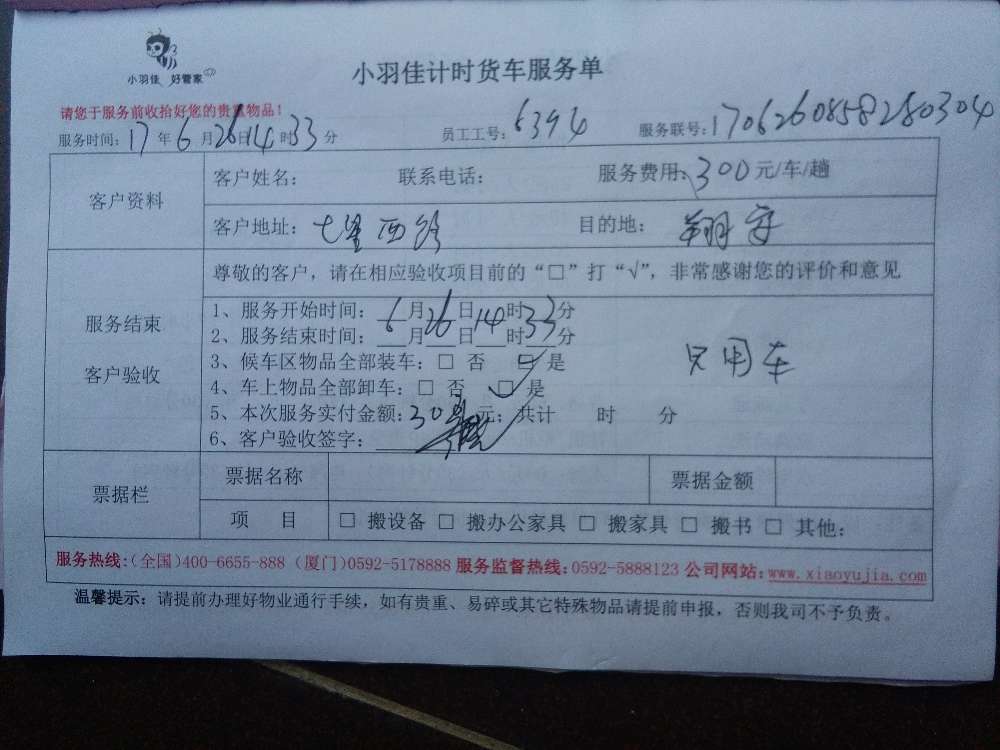 小羽佳 好管家
小羽佳计时货车服务单
请您于服务前收拾好您的贵重物品！
服务时间：17年6月26日14时33分 员工工号：6394 服务联号：1706260858280304
客户资料
客户姓名： 联系电话： 服务费用：300元/车/趟
客户地址：七星西路 目的地：翔安
服务结束
客户验收
尊敬的客户，请在相应验收项目前的“□”打“√”，非常感谢您的评价和意见
1、服务开始时间：6月26日14时33分
2、服务结束时间：__月__日__时__分
3、候车区物品全部装车：□ 否 ☑ 是
4、车上物品全部卸车：□ 否 ☑ 是
5、本次服务实付金额：300元；共计 时 分
6、客户验收签字：
只用车
票据栏
票据名称 票据金额
项 目 □ 搬设备 □ 搬办公家具 □ 搬家具 □ 搬书 □ 其他：
服务热线：（全国）400-6655-888（厦门）0592-5178888 服务监督热线：0592-5888123 公司网站：www.xiaoyujia.com
温馨提示：请提前办理好物业通行手续，如有贵重、易碎或其它特殊物品请提前申报，否则我司不予负责。